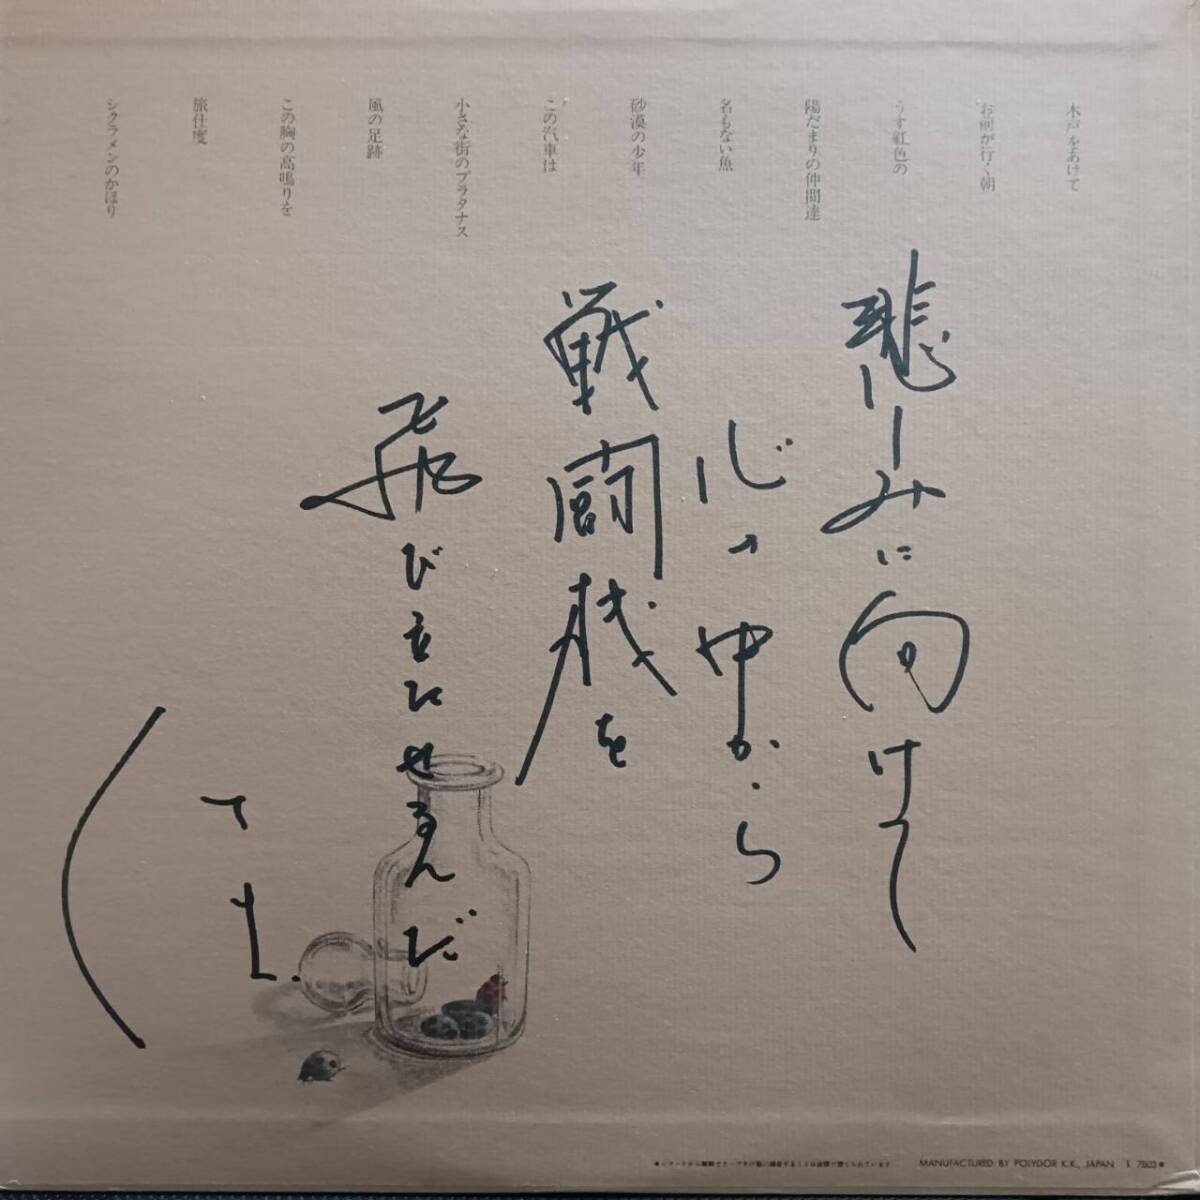 木戸をあけて
お前が行く朝
うす紅色の
陽だまりの仲間達
名もない魚
砂漠の少年
この汽車は
小さな街のプラタナス
風の足跡
この胸の高鳴りを
旅仕度
シクラメンのかほり
悲しみに向けて
心の中から
戦闘機を
飛び立たせるんだ
MANUFACTURED BY POLYDOR K.K., JAPAN I 7603